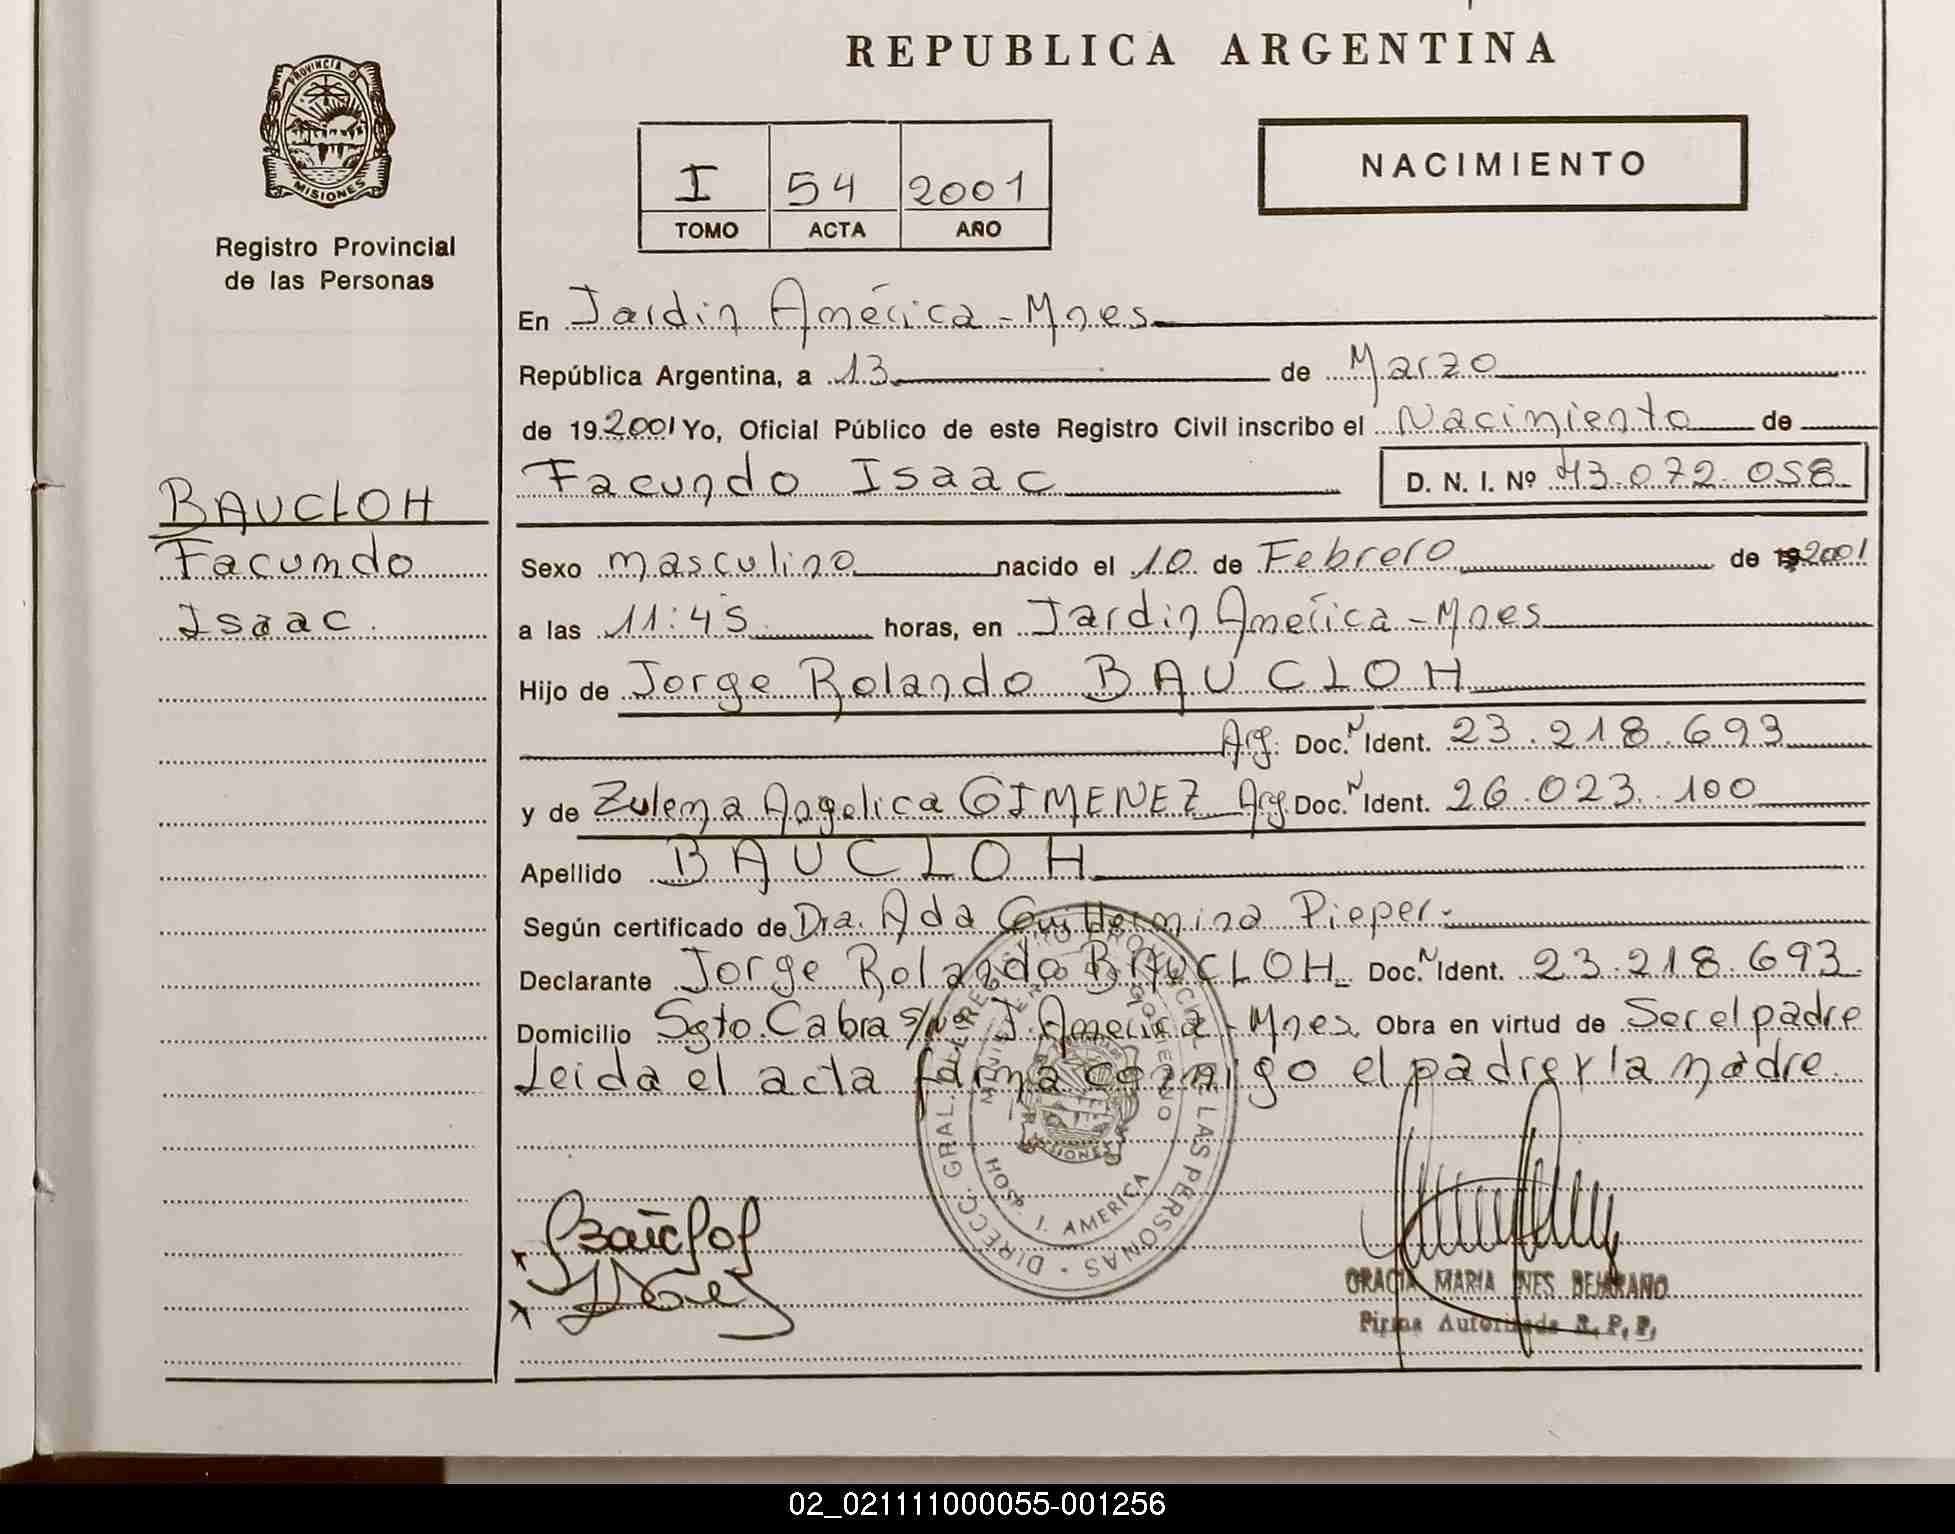 REPUBLICA ARGENTINA
PROVINCIA DE
MISIONES
Registro Provincial
de las Personas
I 54 2001
TOMO ACTA AÑO
NACIMIENTO
En Jardin América - Mnes
República Argentina, a 13 de Marzo
de 19 2001 Yo, Oficial Público de este Registro Civil inscribo el Nacimiento de
Facundo Isaac D. N. I. Nº 43.072.058
BAUCLOH
Facundo
Isaac.
Sexo masculino nacido el 10 de Febrero de 19 2001
a las 11:45 horas, en Jardin América - Mnes
Hijo de Jorge Rolando BAUCLOH
Arg. Doc. N Ident. 23.218.693
y de Zulema Angelica GIMENEZ Arg. Doc. N Ident. 26.023.100
Apellido BAUCLOH
Según certificado de Dra. Ada Guillermina Pieper.-
Declarante Jorge Rolando BAUCLOH Doc. N Ident. 23.218.693
Domicilio Sgto. Cabra s/nº J. América - Mnes Obra en virtud de Ser el padre
Leida el acta firma conmigo el padre y la madre.
DIRECC. GRAL. REGISTRO PROVINCIAL DE LAS PERSONAS
GOBIERNO
MISIONES
HOSP. J. AMERICA
GRACIA MARIA INES BEJARANO
Firma Autorizada R. P. P.
02_021111000055-001256